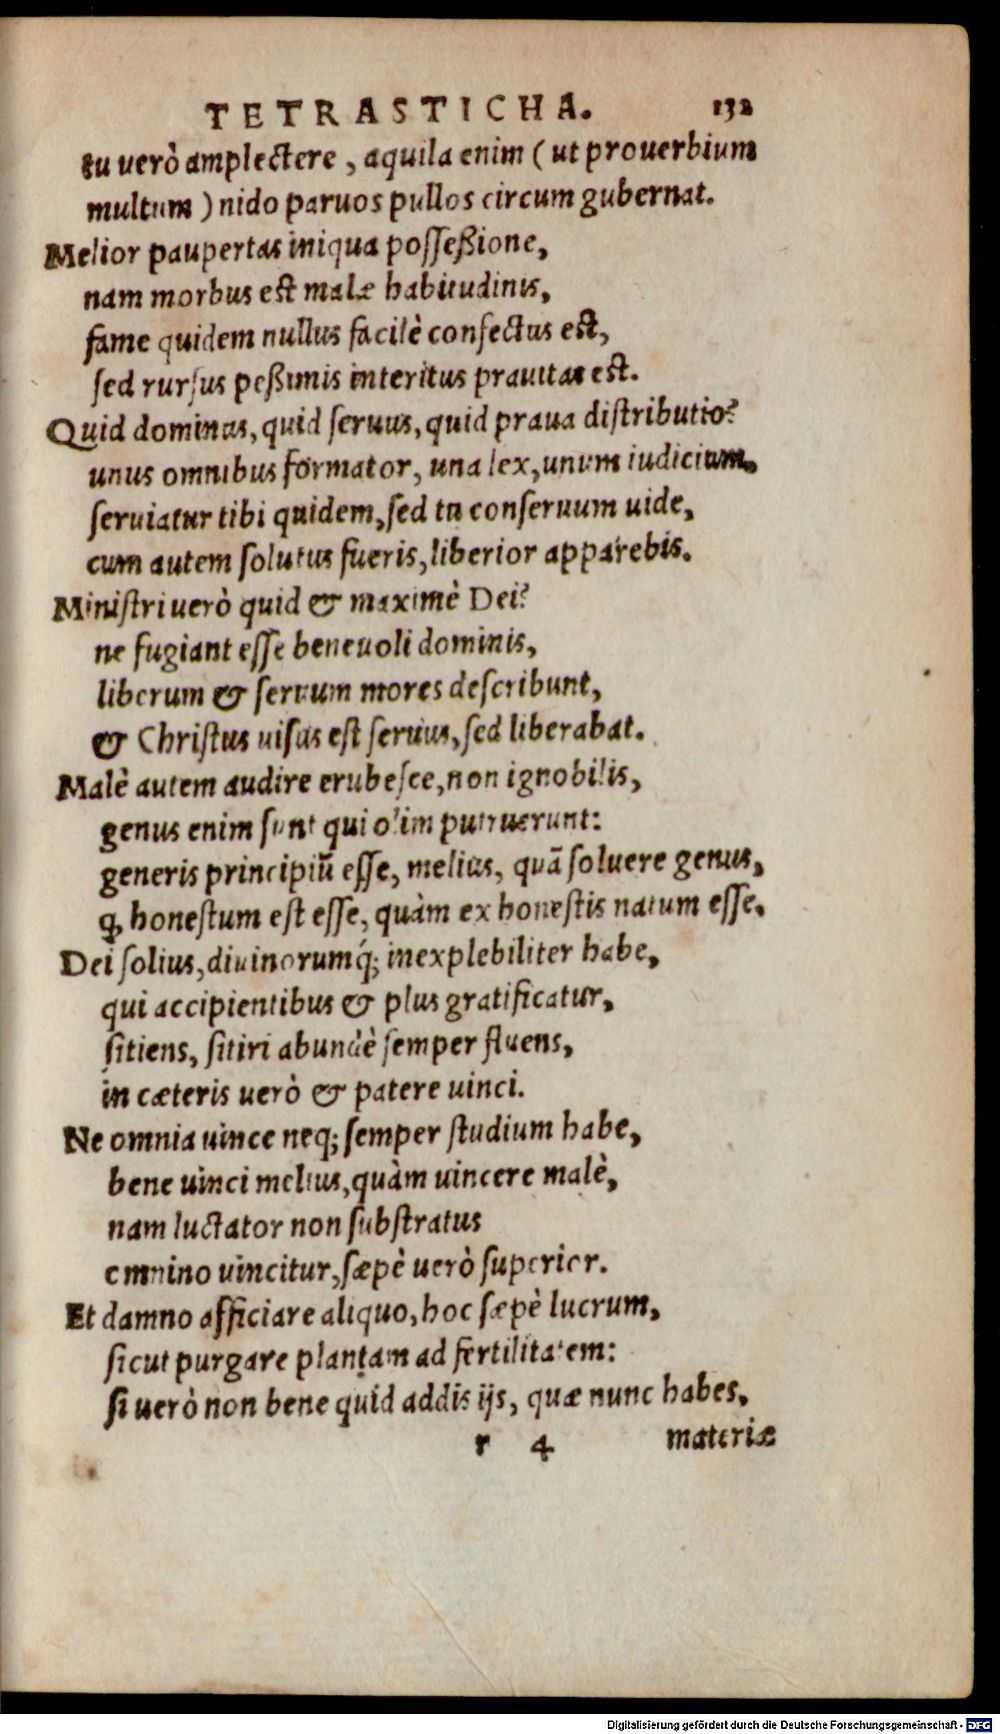 TETRASTICHA. 132
tu verò amplectere, aquila enim (ut prouerbium
multum) nido paruos pullos circum gubernat.
Melior paupertas iniqua posseßione,
nam morbus est malæ habitudinis,
fame quidem nullus facilè confectus est,
sed rursus peßimis interitus prauitas est.
Quid dominus, quid seruus, quid praua distributio?
unus omnibus formator, una lex, unum iudicium,
seruiatur tibi quidem, sed tu conseruum uide,
cum autem solutus fueris, liberior apparebis.
Ministri uerò quid & maximè Dei?
ne fugiant esse beneuoli dominis,
liberum & seruum mores describunt,
& Christus uisus est seruus, sed liberabat.
Malè autem audire erubesce, non ignobilis,
genus enim sunt qui olim putruerunt:
generis principiũ esse, melius, quã soluere genus,
q̃ honestum est esse, quàm ex honestis natum esse.
Dei solius, diuinorumq́; inexplebiliter habe,
qui accipientibus & plus gratificatur,
sitiens, sitiri abundè semper fluens,
in cæteris uerò & patere uinci.
Ne omnia uince neq; semper studium habe,
bene uinci melius, quàm uincere malè,
nam luctator non substratus
omnino uincitur, sæpè uerò superior.
Et damno afficiare aliquo, hoc sæpè lucrum,
sicut purgare plantam ad fertilitatem:
si uerò non bene quid addis ijs, quæ nunc habes,
r 4 materiæ
Digitalisierung gefördert durch die Deutsche Forschungsgemeinschaft - DFG